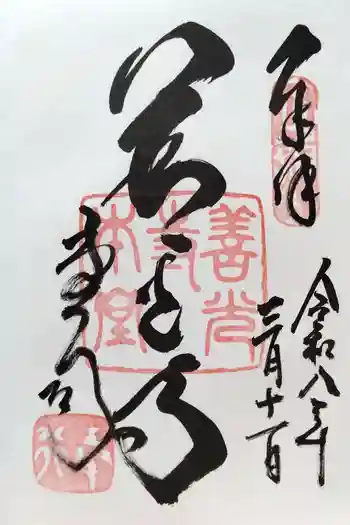 奉拝
令和八年
三月十一日
善光寺
善光
寺
本堂